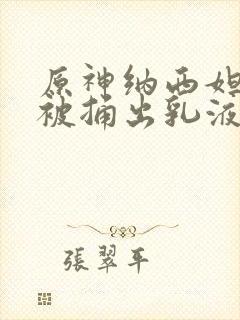 原神纳西妲
被捅出乳液
張翠平